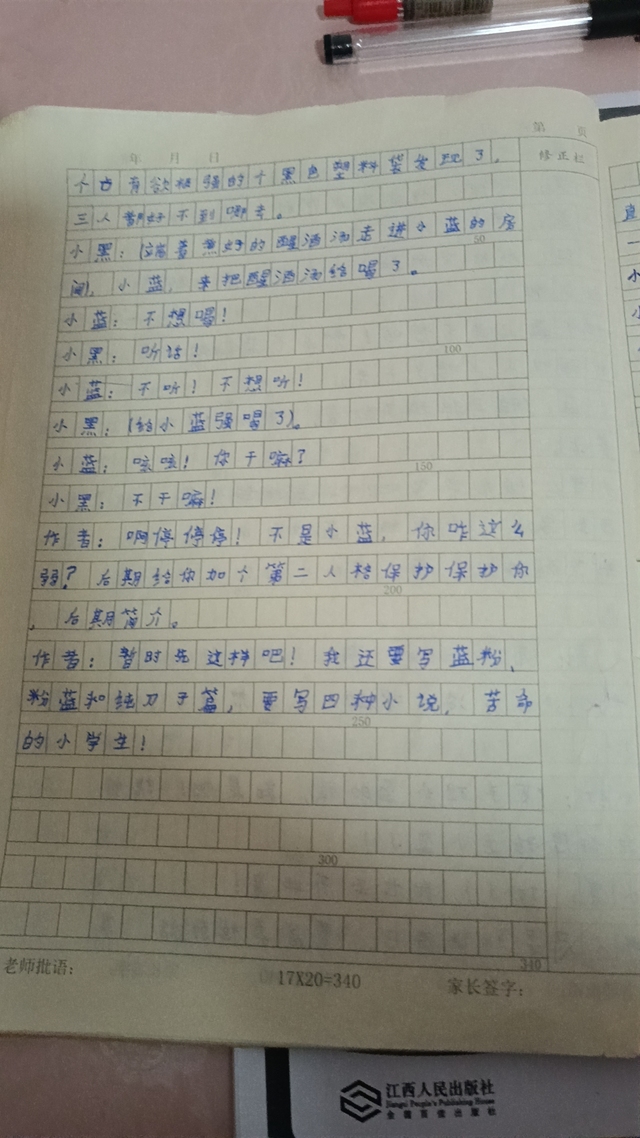 第 页
年 月 日
修正栏
个占有欲极强的个黑色塑料袋发现了，
三人都好不到哪去。
小黑：（端着煮好的醒酒汤走进小蓝的房
50
间，小蓝，来把醒酒汤给喝了。
小蓝：不想喝！
小黑：听话！
100
小蓝：不听！不想听！
小黑：（给小蓝强喝了）。
小蓝：咳咳！你干嘛？
150
小黑：不干嘛！
作者：啊停停停！不是小蓝，你咋这么
弱？后期给你加个第二人格保护保护你
200
，后期简介。
作者：暂时先这样吧！我还要写蓝粉、
粉蓝和纯刀子篇，要写四种小说，苦命
250
的小学生！
300
340
老师批语：
17X20=340
家长签字：
江西人民出版社
Jiangxi People's Publishing House
全国百佳出版社